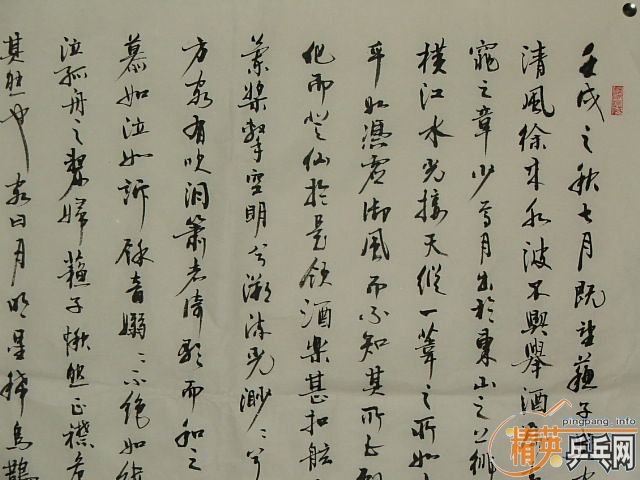 壬戌之秋七月既望蘇子
清風徐来水波不興舉酒
窕之章少焉月出於東山之上徘
横江水光接天縱一葦之所如
乎如馮虚御風而不知其所止
化而登仙於是飲酒樂甚扣舷
蘭槳擊空明兮溯流光渺〻兮
方客有吹洞簫者倚歌而和之
慕如泣如訴餘音嫋〻不絶如縷
泣孤舟之嫠婦蘇子愀然正襟危
其然也客曰月明星稀烏鵲
pingpang.info
精英乒乓网